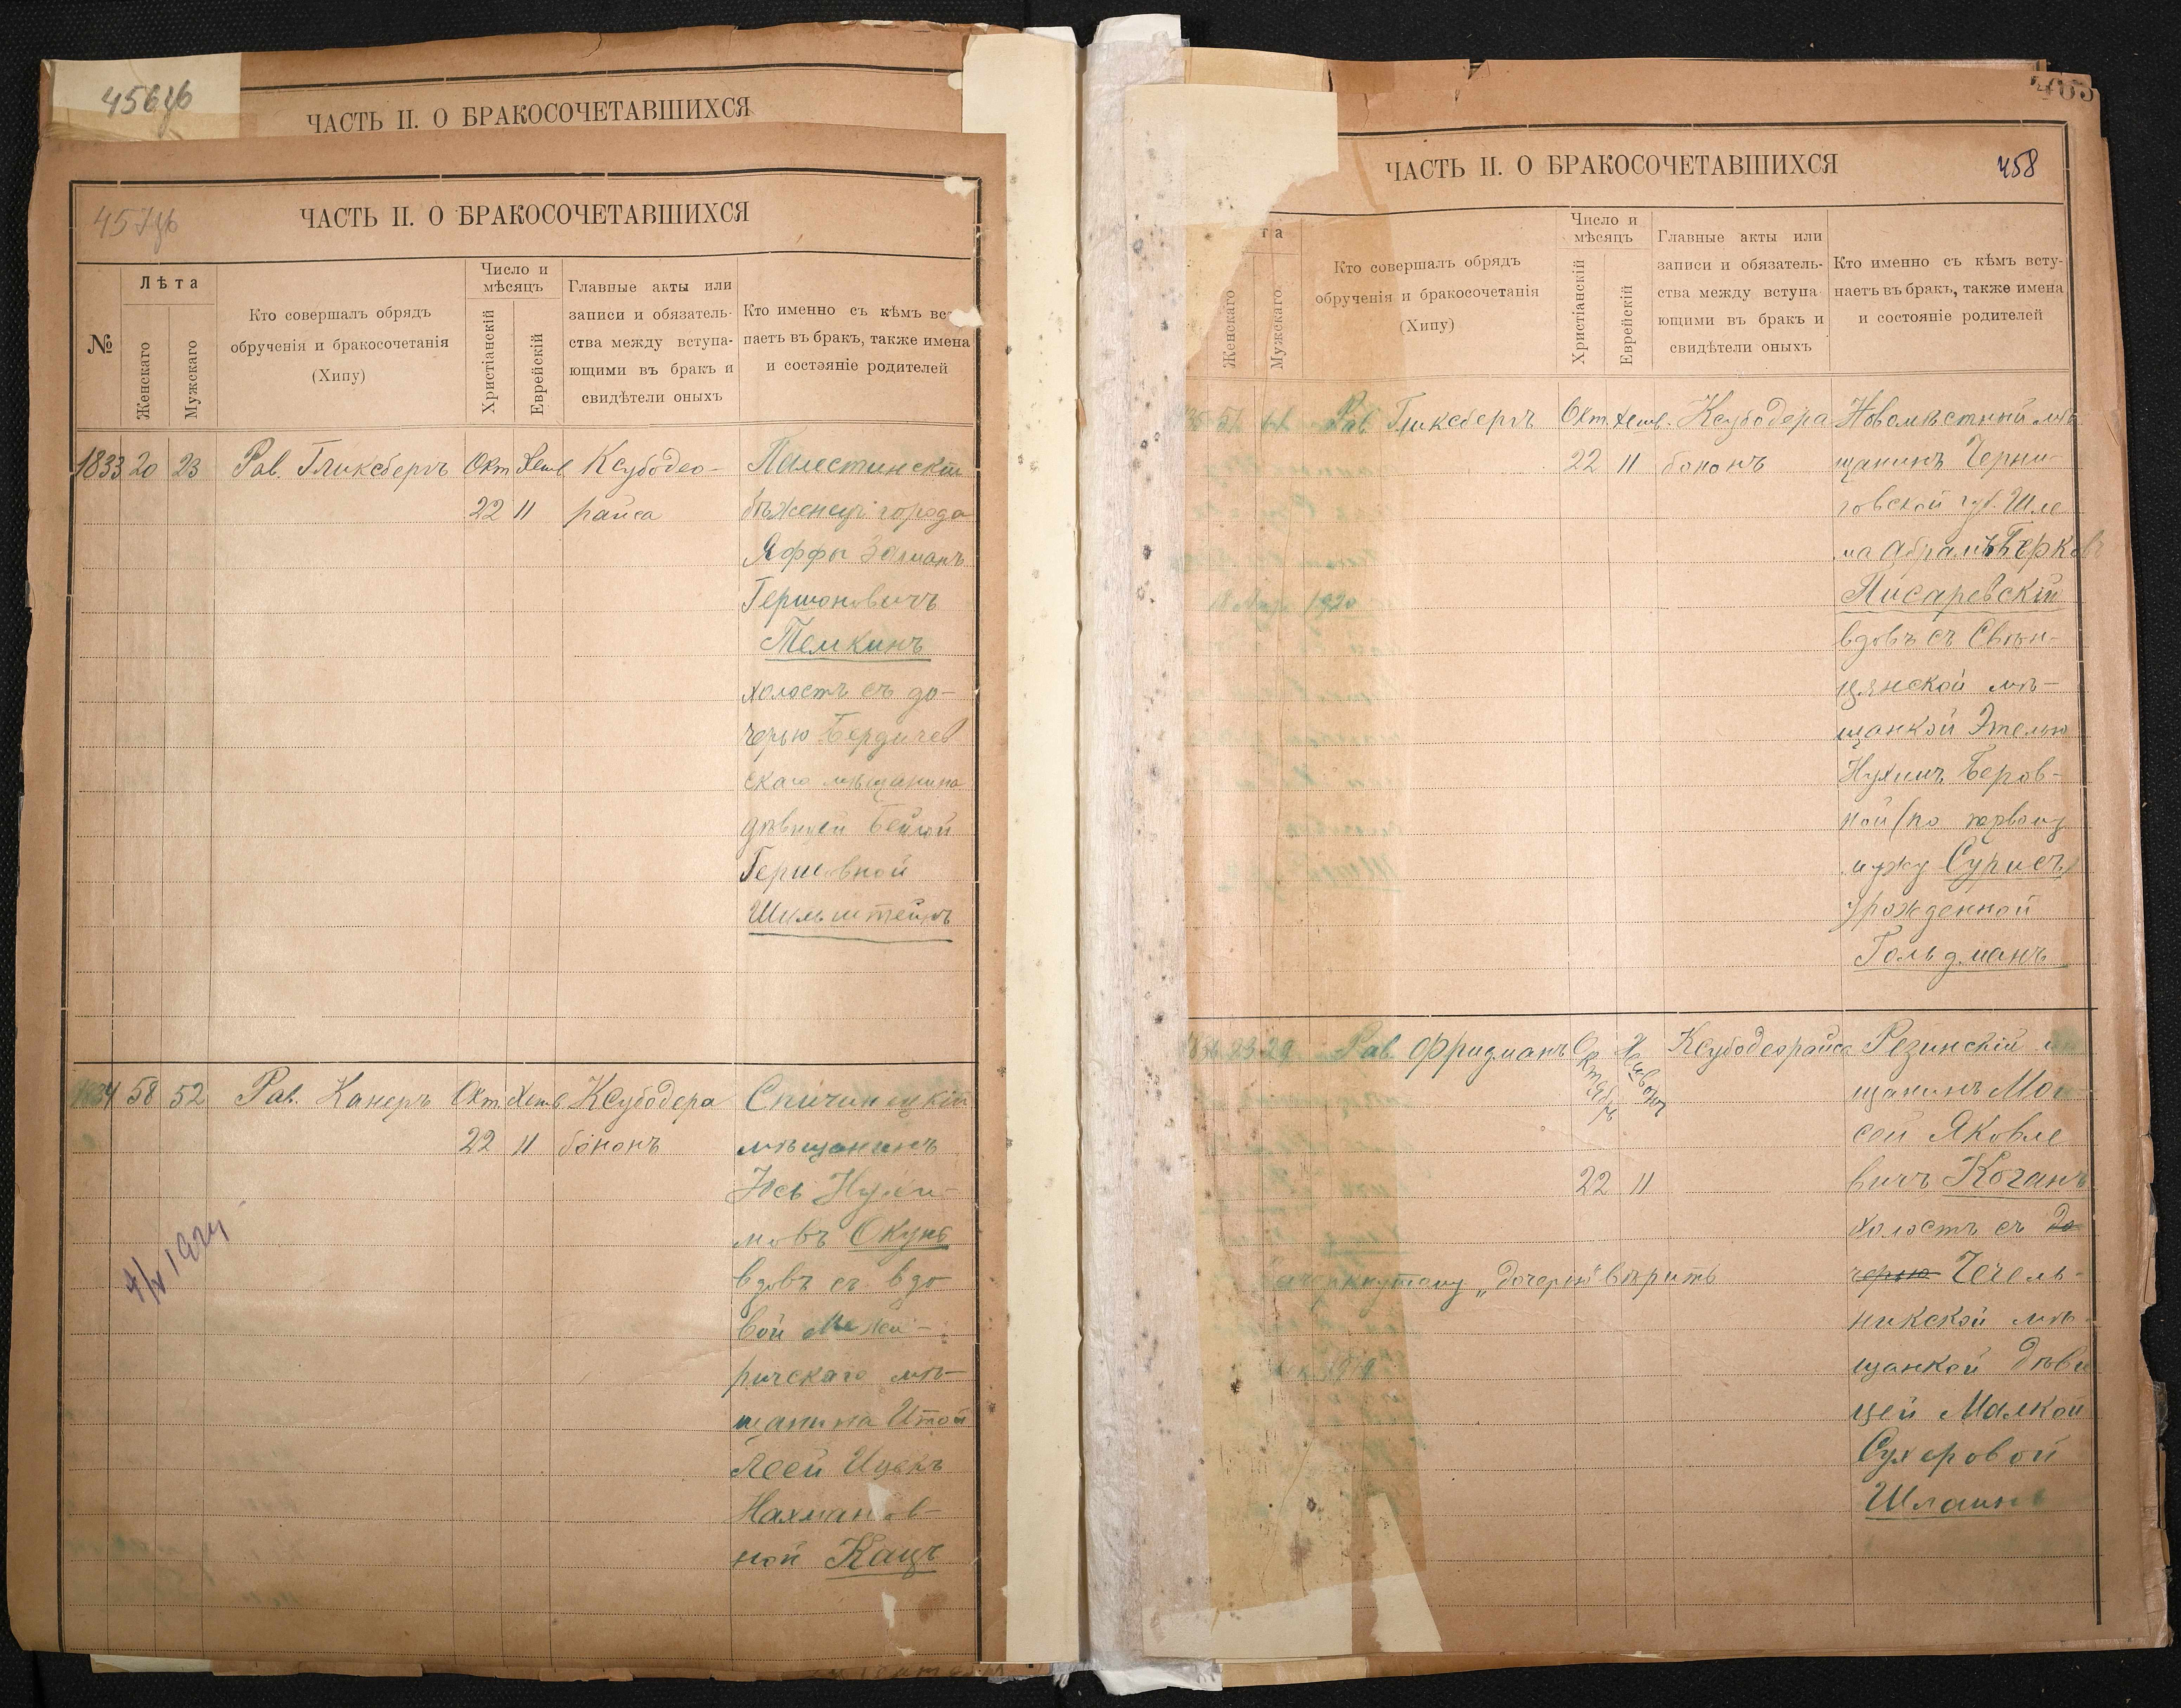 456об
ЧАСТЬ II. О БРАКОСОЧЕТАВШИХСЯ
457об
ЧАСТЬ II. О БРАКОСОЧЕТАВШИХСЯ
№
Лѣта
Женскаго
Мужскаго
Кто совершалъ обрядъ
обрученія и бракосочетанія
(Хипу)
Число и
мѣсяцъ
Христіанскій
Еврейскій
Главные акты или
записи и обязатель-
ства между вступа-
ющими въ бракъ и
свидѣтели оныхъ
Кто именно съ кѣмъ вс
паетъ въ бракъ, также имена
и состояніе родителей
1833 20 23 Рав. Гликсбергъ Окт Хешв Ксубодео- Палестинскій
22 11 райса бѣженецъ города
Яффы Залманъ
Гершоновичъ
Темкинъ
холостъ съ до-
черью Бердичев
скаго мѣщанина
дѣвицей Бейлой
Гершовной
Шильштейнъ
1834 58 52 Рав. Канеръ Окт. Хешв Ксубодера Спичинецкій
22 11 бононъ мѣщанинъ
Іось Нухи-
мовъ Окунь
вдовъ съ вдо
вой Межи-
ричскаго мѣ-
щанина Итой
Леей Ицекъ
Нахманов-
ной Кацъ
1924
403
ЧАСТЬ II. О БРАКОСОЧЕТАВШИХСЯ
458
та
Женскаго
Мужскаго
Кто совершалъ обрядъ
обрученія и бракосочетанія
(Хипу)
Число и
мѣсяцъ
Христіанскій
Еврейскій
Главные акты или
записи и обязатель-
ства между вступа
ющими въ бракъ и
свидѣтели оныхъ
Кто именно съ кѣмъ всту-
паетъ въ бракъ, также имена
и состояніе родителей
Рав. Гликсбергъ Окт. Хешв. Ксубодера Новомѣстный мѣ
22 11 бононъ щанинъ Черни-
говской губ. Шле
ма Абрамъ Берковъ
Писаревскій
вдовъ съ Свѣн-
цянской мѣ-
щанкой Этелью
Нухимъ Беров-
ной (по первому
мужу Сурисъ)
урожденной
Гольдманъ
1836 23 29 Рав. Фридманъ Октябрь Хешвонъ Ксубодеорайса Резинскій мѣ
щанинъ Мои
сей Яковле
22 11 вичъ Коганъ
холостъ съ до
зачеркнутому „дочерью" вѣрить черью Чечель-
никской мѣ-
щанкой дѣви
цей Малкой
Сухеровой
Шлаин